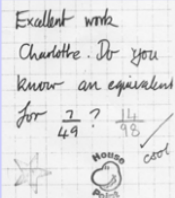 Excellent work
Charlotte. Do you
know an equivalent
for 7/49? 14/98
cool
House
Point